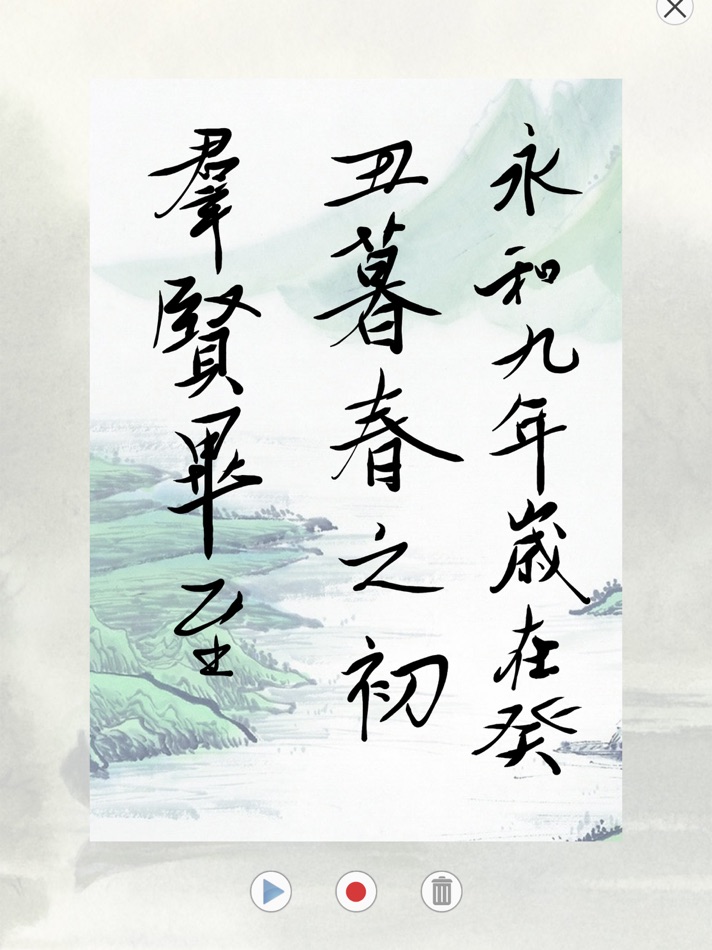 永和九年歲在癸
丑暮春之初
羣賢畢至